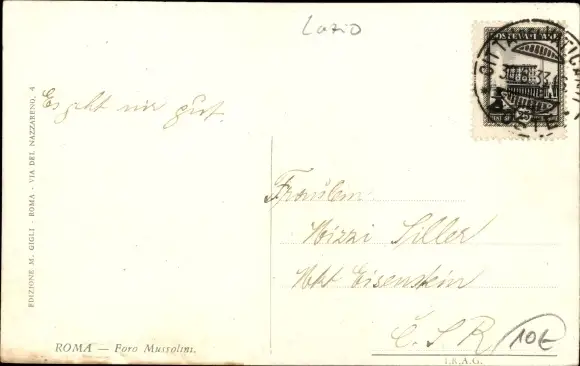 Lazio
POSTE VATICANE
CITTÀ
Es geht mir gut.
Fräulein
Mizzi Siller
Mkt Eisenstein
Č. S. R
10€
EDIZIONE M. GIGLI - ROMA - VIA DEL NAZZARENO, 4
ROMA — Foro Mussolini.
I.R.A.G.